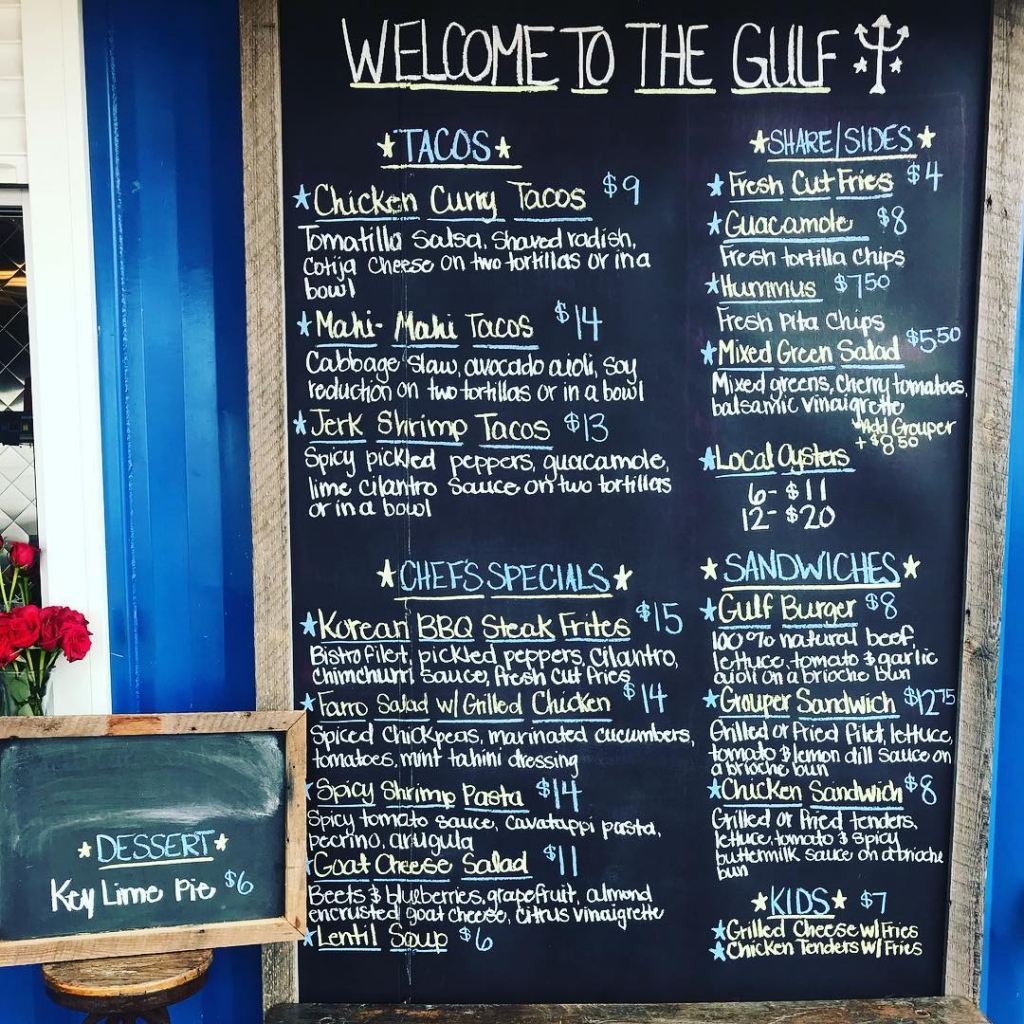 WELCOME TO THE GULF
★TACOS★
★Chicken Curry Tacos $9
Tomatilla Salsa, Shaved radish,
Cotija Cheese on two tortillas or in a
bowl
★Mahi-Mahi Tacos $14
Cabbage Slaw, avocado aioli, soy
reduction on two tortillas or in a bowl
★Jerk Shrimp Tacos $13
Spicy pickled peppers, guacamole,
lime cilantro sauce on two tortillas
or in a bowl
★CHEF'S SPECIALS★
★Korean BBQ Steak Frites $15
Bistro filet, pickled peppers, cilantro,
chimichurri sauce, fresh cut fries
★Farro Salad w/ Grilled Chicken $14
Spiced Chickpeas, marinated cucumbers,
tomatoes, mint tahini dressing
★Spicy Shrimp Pasta $14
Spicy tomato sauce, cavatappi pasta,
pecrino, arugula
★Goat Cheese Salad $11
Beets & blueberries, grapefruit, almond
encrusted goat cheese, citrus vinaigrette
★Lentil Soup $6
★SHARE/SIDES★
★Fresh Cut Fries $4
★Guacamole $8
Fresh tortilla chips
★Hummus $7.50
Fresh Pita Chips
★Mixed Green Salad $5.50
Mixed greens, cherry tomatoes,
balsamic vinaigrette
*Add Grouper
+ $8.50
★Local Oysters
6- $11
12- $20
★SANDWICHES★
★Gulf Burger $8
100% natural beef,
lettuce, tomato & garlic
aioli on a brioche bun
★Grouper Sandwich $12.75
Grilled or Fried filet, lettuce,
tomato & lemon dill sauce on
a brioche bun
★Chicken Sandwich $8
Grilled or Fried tenders,
lettuce, tomato & spicy
buttermilk sauce on a brioche
bun
★KIDS★ $7
★Grilled Cheese w/ Fries
★Chicken Tenders w/ Fries
★DESSERT★
Key Lime Pie $6